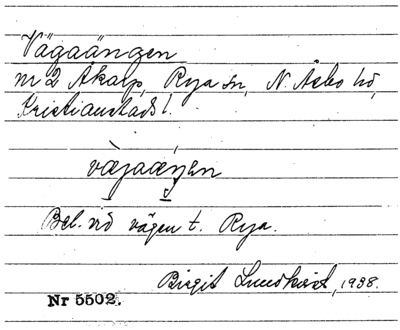 Vägaängen
nr 2 Åkarp, Rya sn, N. Åsbo hd,
Kristianstads l.
vägaäŋen
Bel. vid vägen t. Rya.
Birgit Lundkvist, 1938.
Nr 5502.